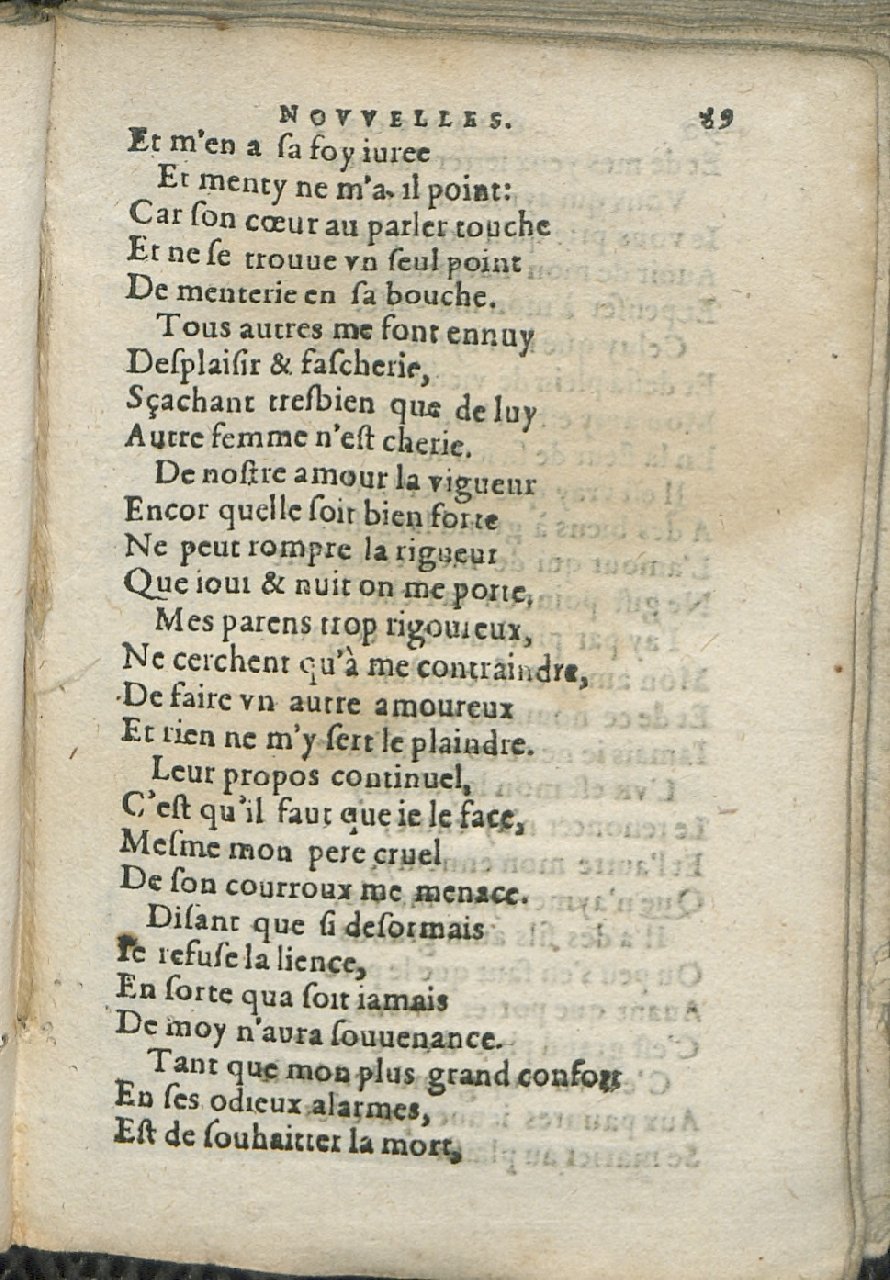 NOVVELLES. 89
Et m'en a ſa foy iuree
Et menty ne m'a il point:
Car ſon cœur au parler touche
Et ne ſe trouue vn ſeul point
De menterie en ſa bouche.
Tous autres me font ennuy
Deſplaiſir & faſcherie,
Sçachant treſbien que de luy
Autre femme n'eſt cherie.
De noſtre amour la vigueur
Encor quelle ſoit bien forte
Ne peut rompre la rigueur
Que iour & nuit on me porte,
Mes parens trop rigoureux,
Ne cerchent qu'à me contraindre,
De faire vn autre amoureux
Et rien ne m'y ſert le plaindre.
Leur propos continuel,
C'eſt qu'il faut que ie le face,
Meſme mon pere cruel
De ſon courroux me menace.
Diſant que ſi deſormais
Ie refuſe la lience,
En ſorte qua ſoit iamais
De moy n'aura ſouuenance.
Tant que mon plus grand confort
En ſes odieux alarmes,
Eſt de ſouhaitter la mort,